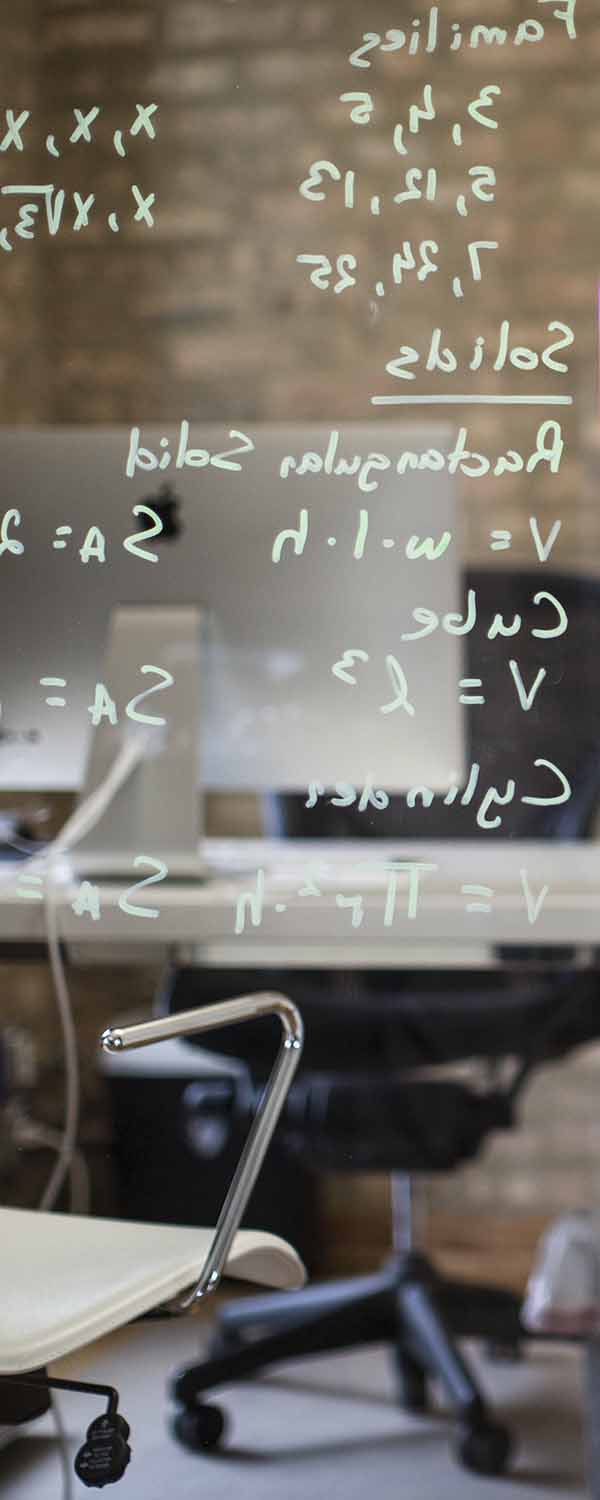 Families
3, 4, 5 x, x, x
5, 12, 13 x, x√3,
7, 24, 25
Solids
Rectangular Solid
V = w·l·h SA = 2
Cube
V = l³ SA =
Cylinder
V = πr²·h SA =